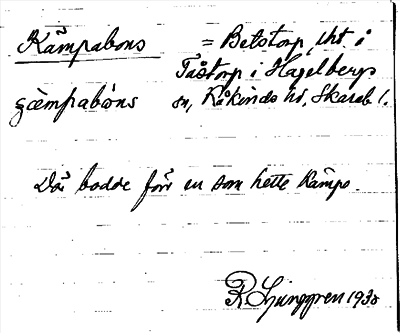 Kämpabons = Betstorp, lht. i
Tåstorp i Hagelbergs
gæmpabòns sn, Kåkinds hd, Skarab l.
Där bodde förr en som hette Kämpe.
R. Ljunggren 1930